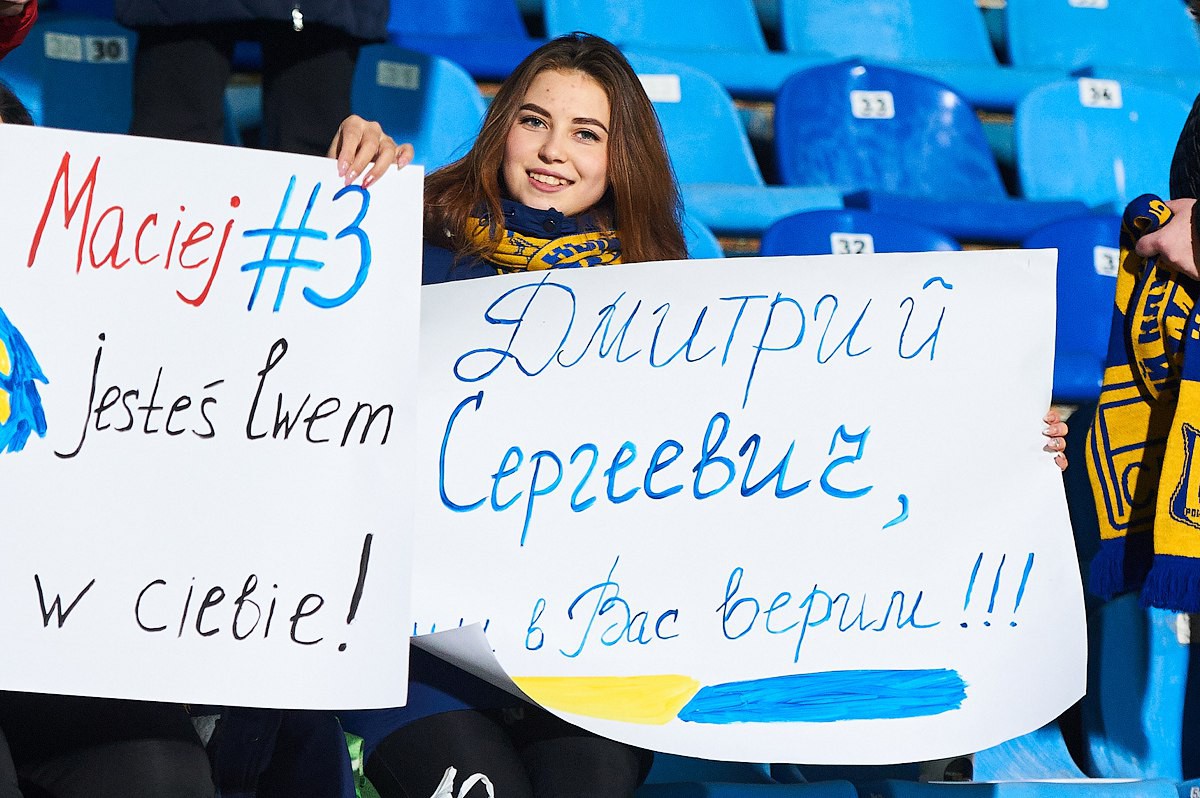 30 30
31
33
34
32
Maciej #3
jesteś lwem
w ciebie!
Дмитрий
Сергеевич,
в Вас верим!!!